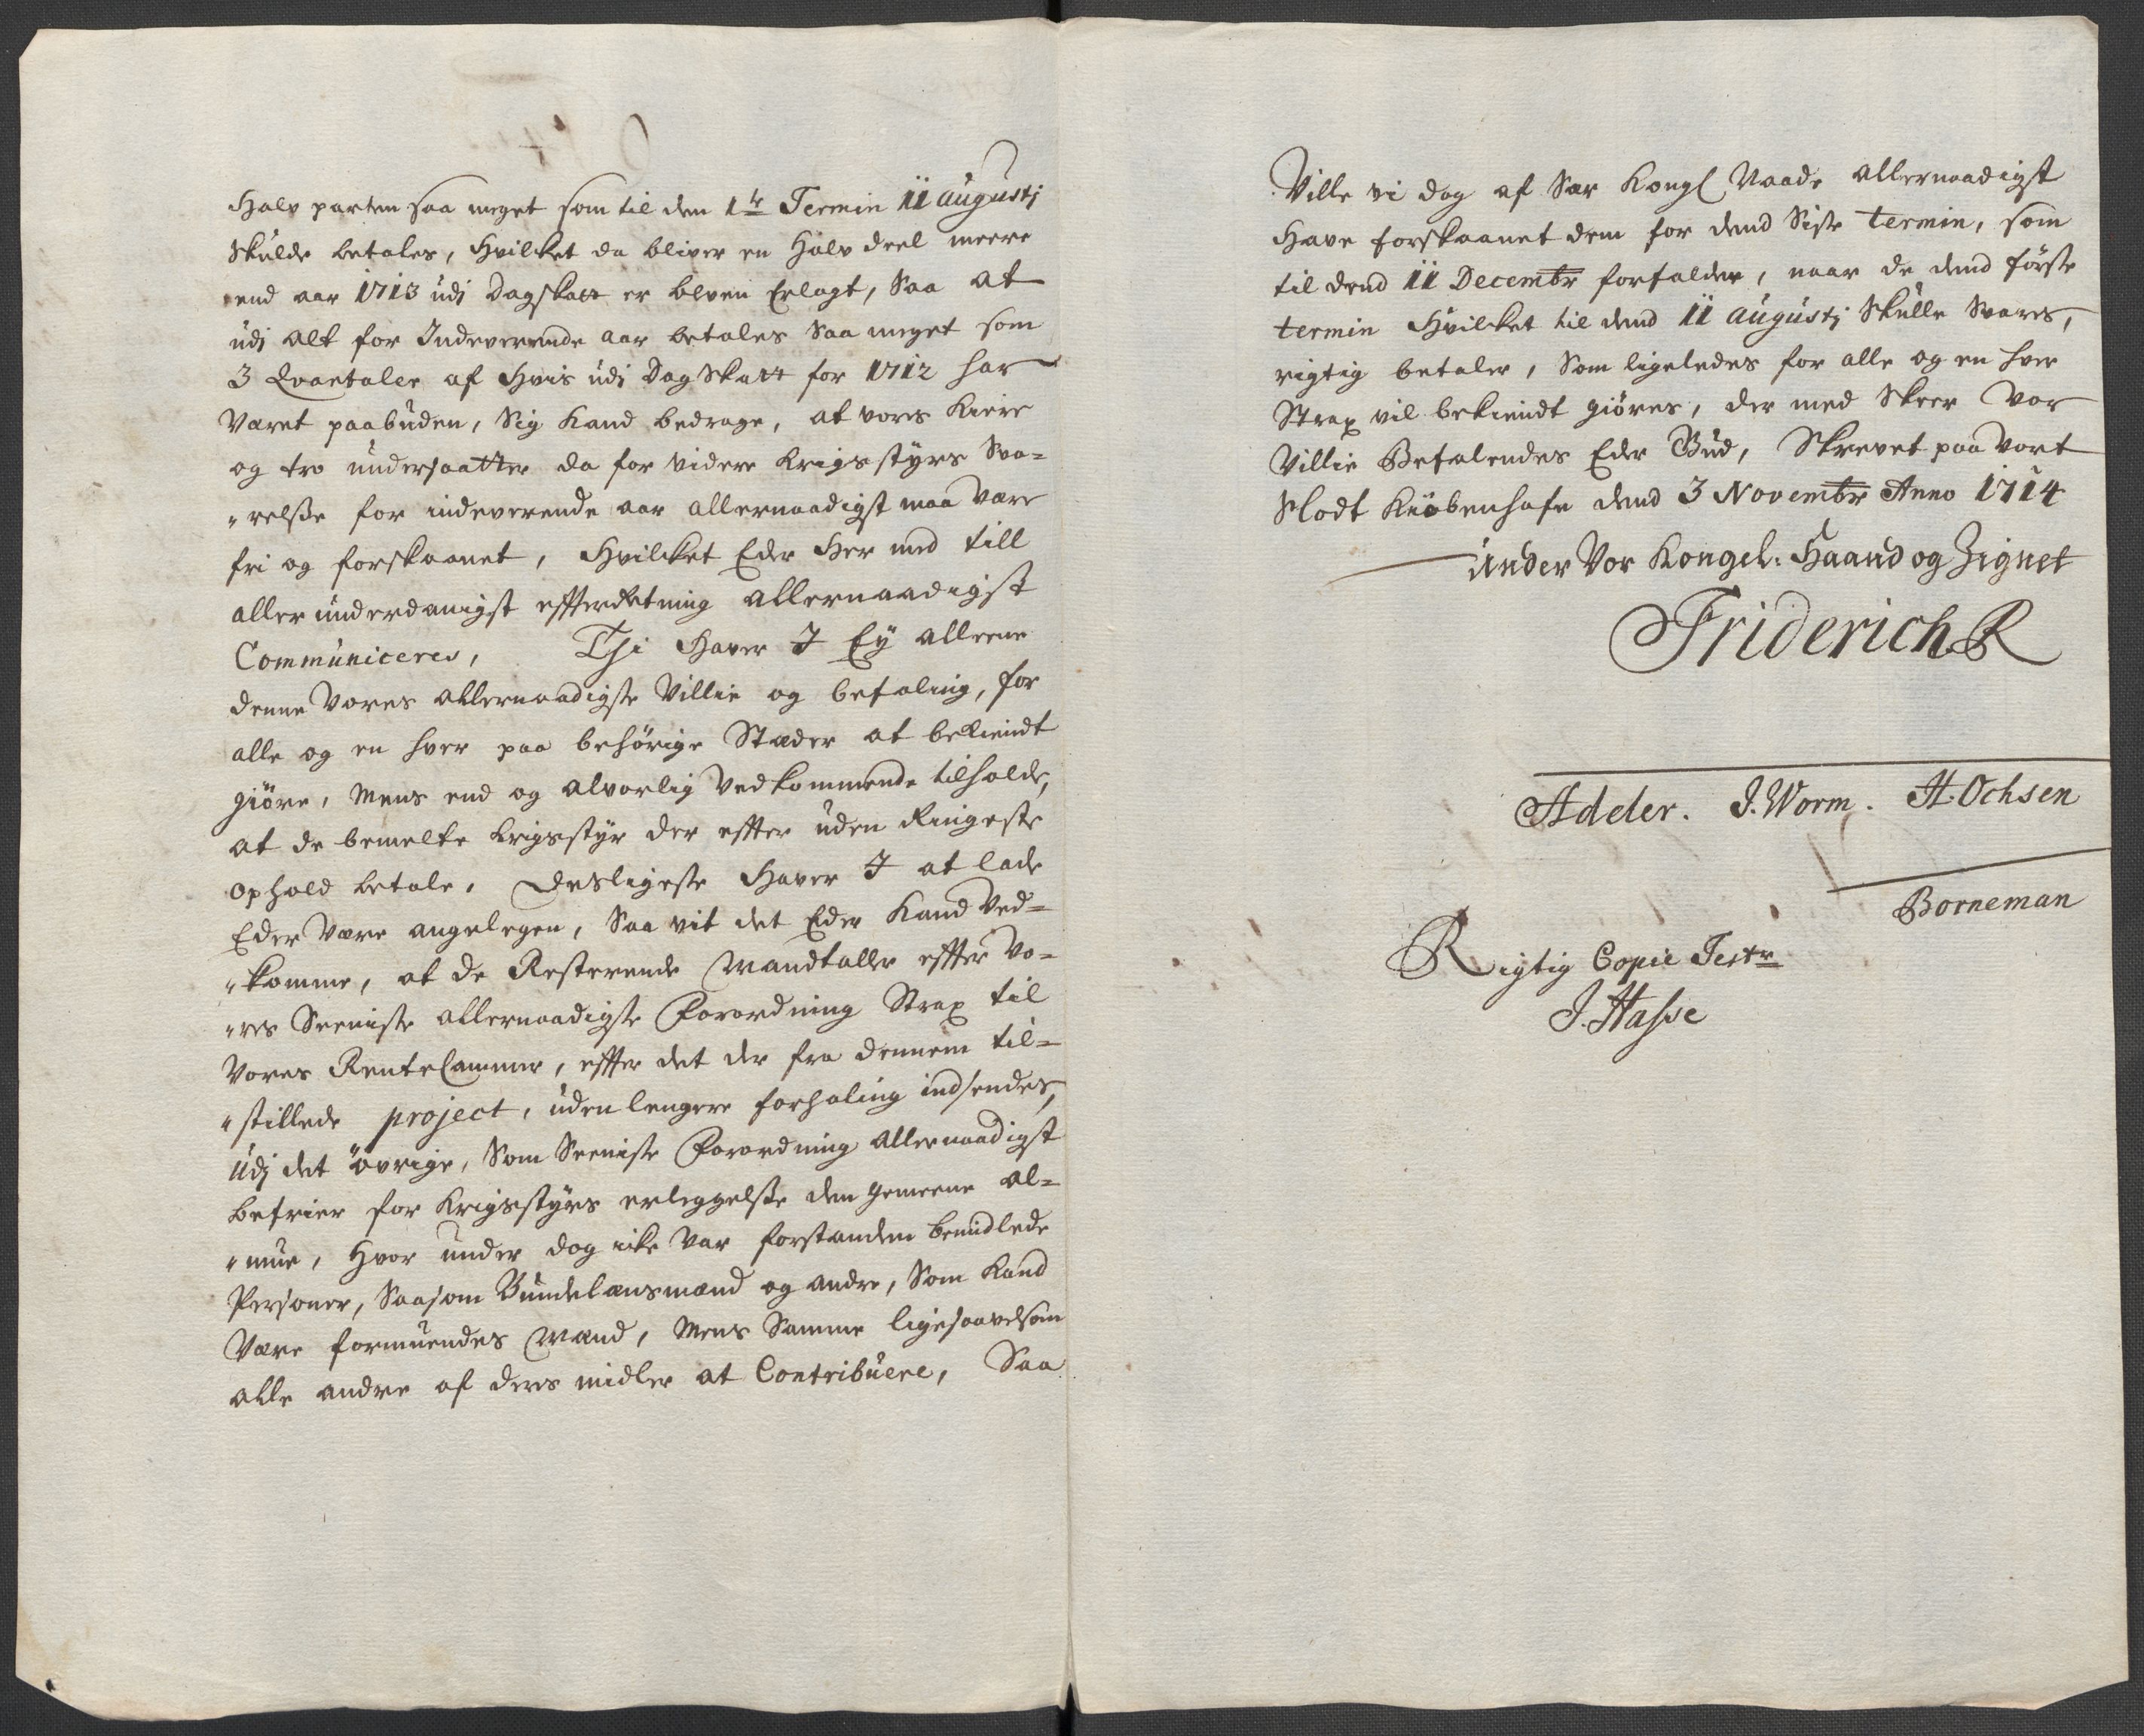 Halv parten saa meget som til den 1te Termin 11 Augustj
skulde betales, Hvilket da bliver en Halv deel meere
end aar 1713 udj Dagskatt er bleven Erlagt, Saa at
udj alt for Indeverende aar betales saa meget som
3 Qvartaler af Hvis udj Dag Skatt for 1712 har
Været paabuden, Sig Kand bedrage, at vores Kiere
og tro undersaatter da for videre Krigsstyrs Sva=
"relsse for indeverende aar allernaadigst maa være
fri og forskaanet, Hvilket Eder Her med till
allerunderdanigst effterretning allernaadigst
Communiceres, Thi Haver I Ey alleene
denne Vores allernaadigste Villie og befaling, for
alle og en hver paa behörige Stæder at bekiendt
giöre, mens end og alvorlig Vedkommende tilholde,
at de bemelte Krigsstyr der effter uden Ringeste
ophold betale. Desligeste Haver I at lade
Eder Være angelegen, Saa vit det Eder Kand Ved=
"komme, at de Resterende Mandtaller effter Vo=
"res Seeniste allernaadigste Forordning Strax til
Vores RenteCammer, effter det der fra dennem til=
"stillede project, uden lengere forhaling indsendes,
Udj det övrige, Som Seeniste Forordning allernaadigst
befrier for Krigsstyrs erleggelsse den gemeene al=
"mue, Hvor under dog icke var forstanden bemidlede
Personer, Saasom Bundelænsmænd og andre, Som Kand
Være formuendes Mænd, Mens Samme ligesaavelsom
alle andre af deres midler at Contribuere, Saa
Ville vi dog af Sær Kongl Naade allernaadigst
Have forskaanet dem for dend Siste termin, som
til dend 11 Decembr forfalder, naar de dend förste
termin Hvilket til dend 11 Augustj Skulle Svares,
rigtig betaler, Som ligeledes for alle og en hver
Strax vil bekiendt giöres, der med Skeer Vor
Villie Befalendes Eder Gud, Skrevet paa Vort
Slodt Kiöbenhafn dend 3 Novembr Anno 1714
Under Vor Kongel: Haand og Zignet
Friderich R
Adeler. J. Worm. H. Ochsen
Borneman
Rigtig Copie Testr
J. Hasse